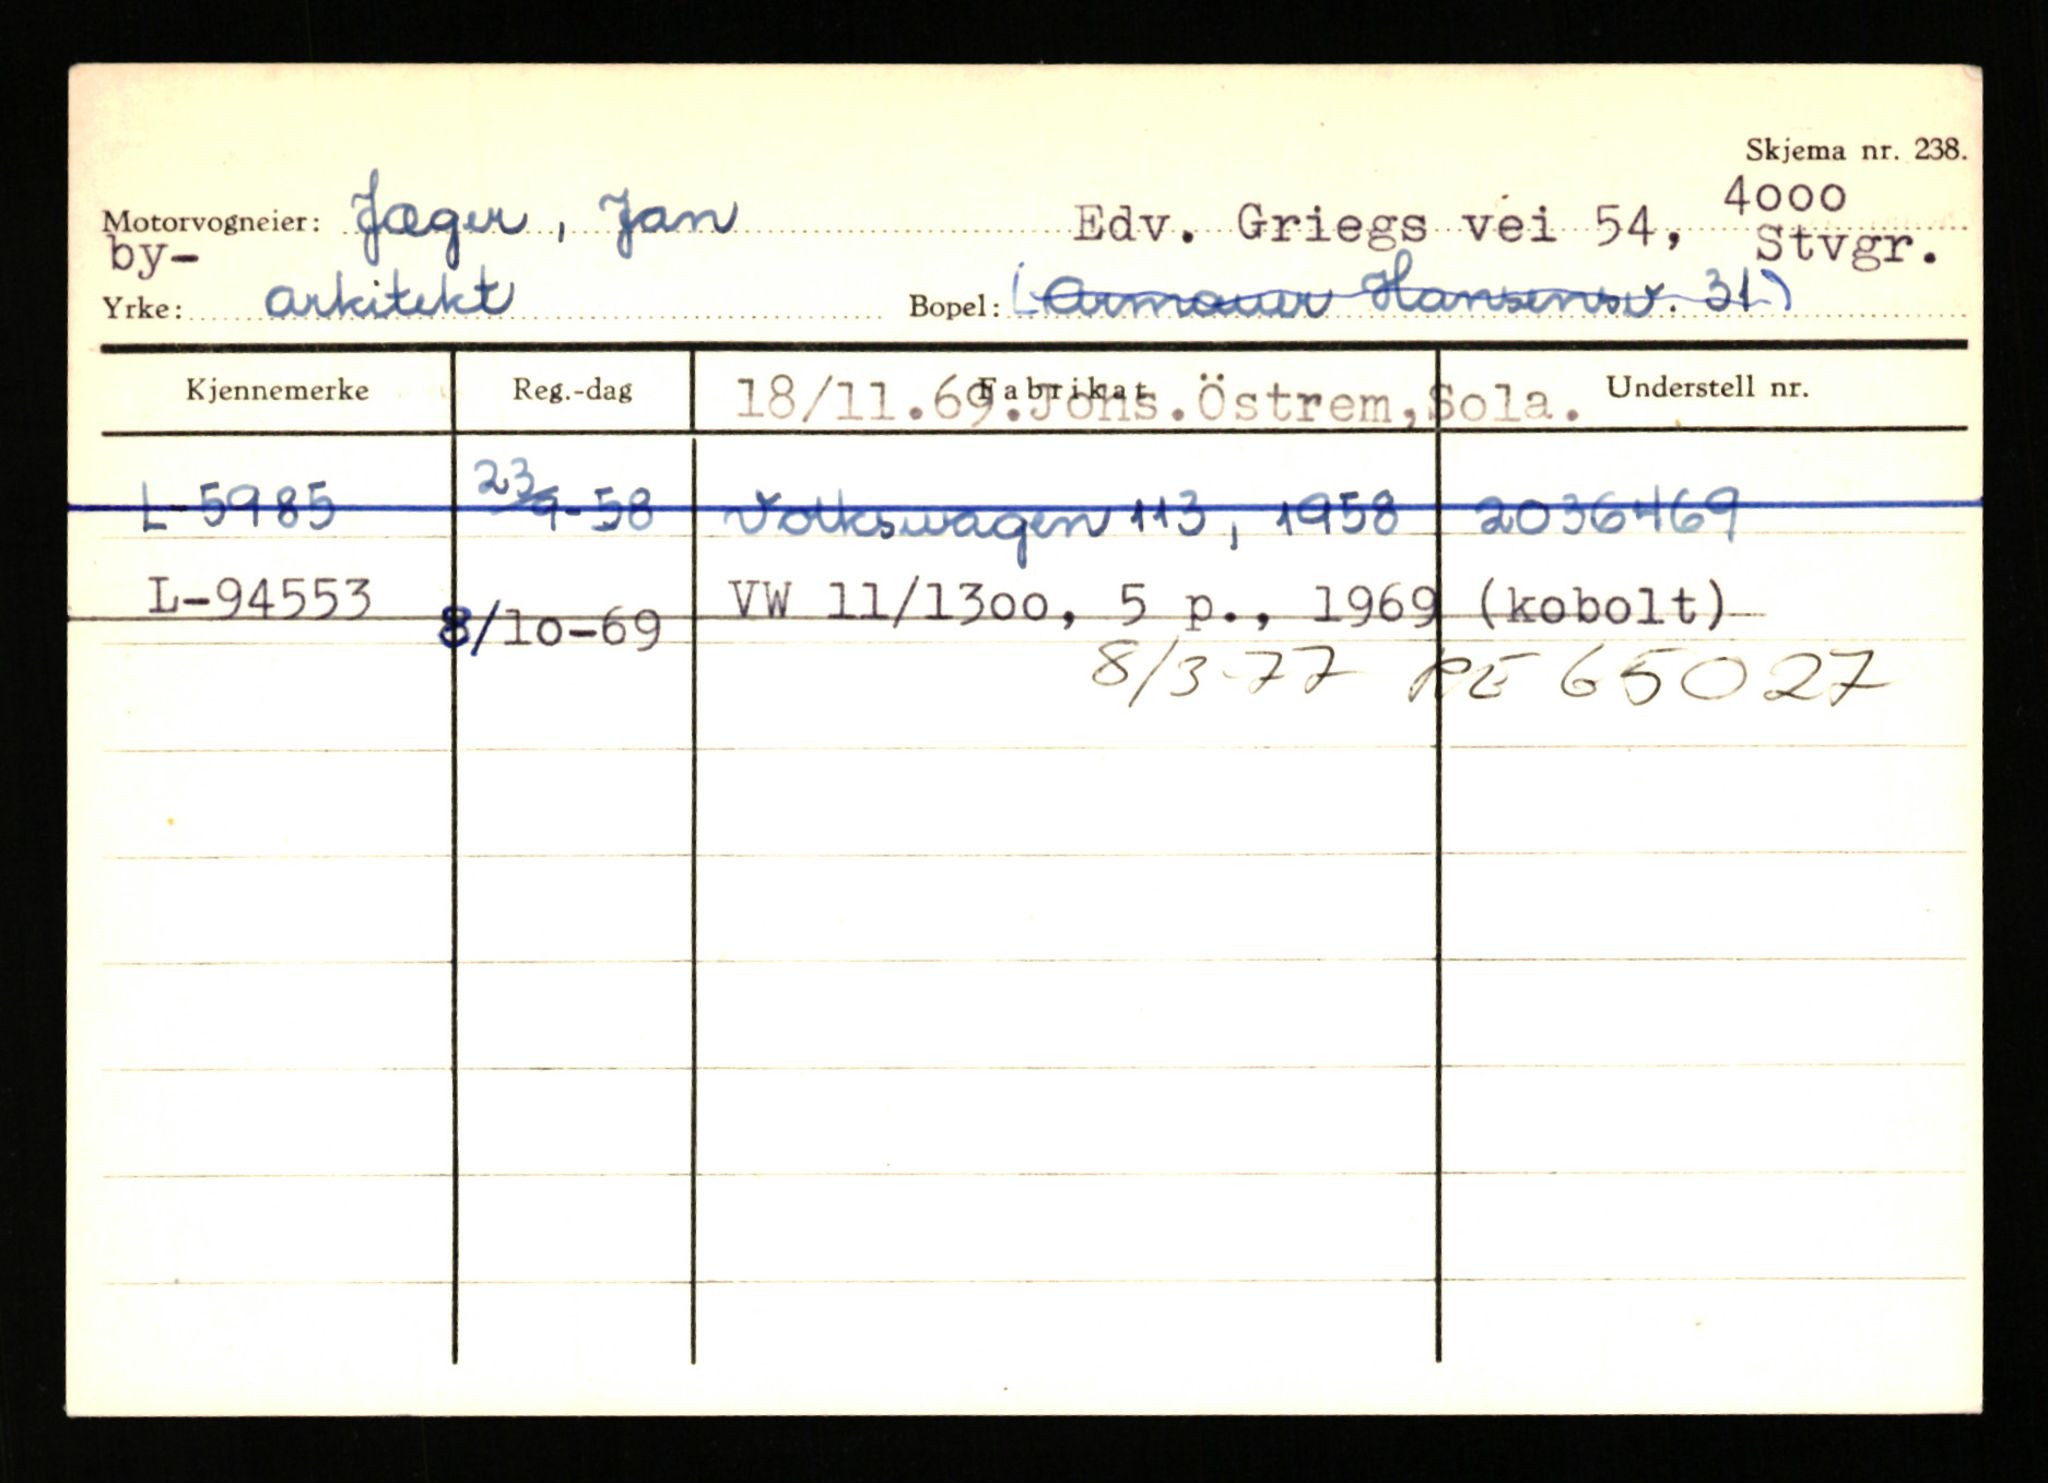 Skjema nr. 238.
4000
Motorvogneier: Jæger, Jan Edv. Griegs vei 54, Stvgr.
by-
Yrke: arkitekt Bopel: (Armauer Hansensv. 31)
Kjennemerke Reg.-dag Fabrikat Understell nr.
18/11.69.Johs.Östrem,Sola.
L-5985 23/9-58 Volkswagen 113, 1958 2036469
L-94553 8/10-69 VW 11/1300, 5 p., 1969 (kobolt)
8/3-77 RE 65027